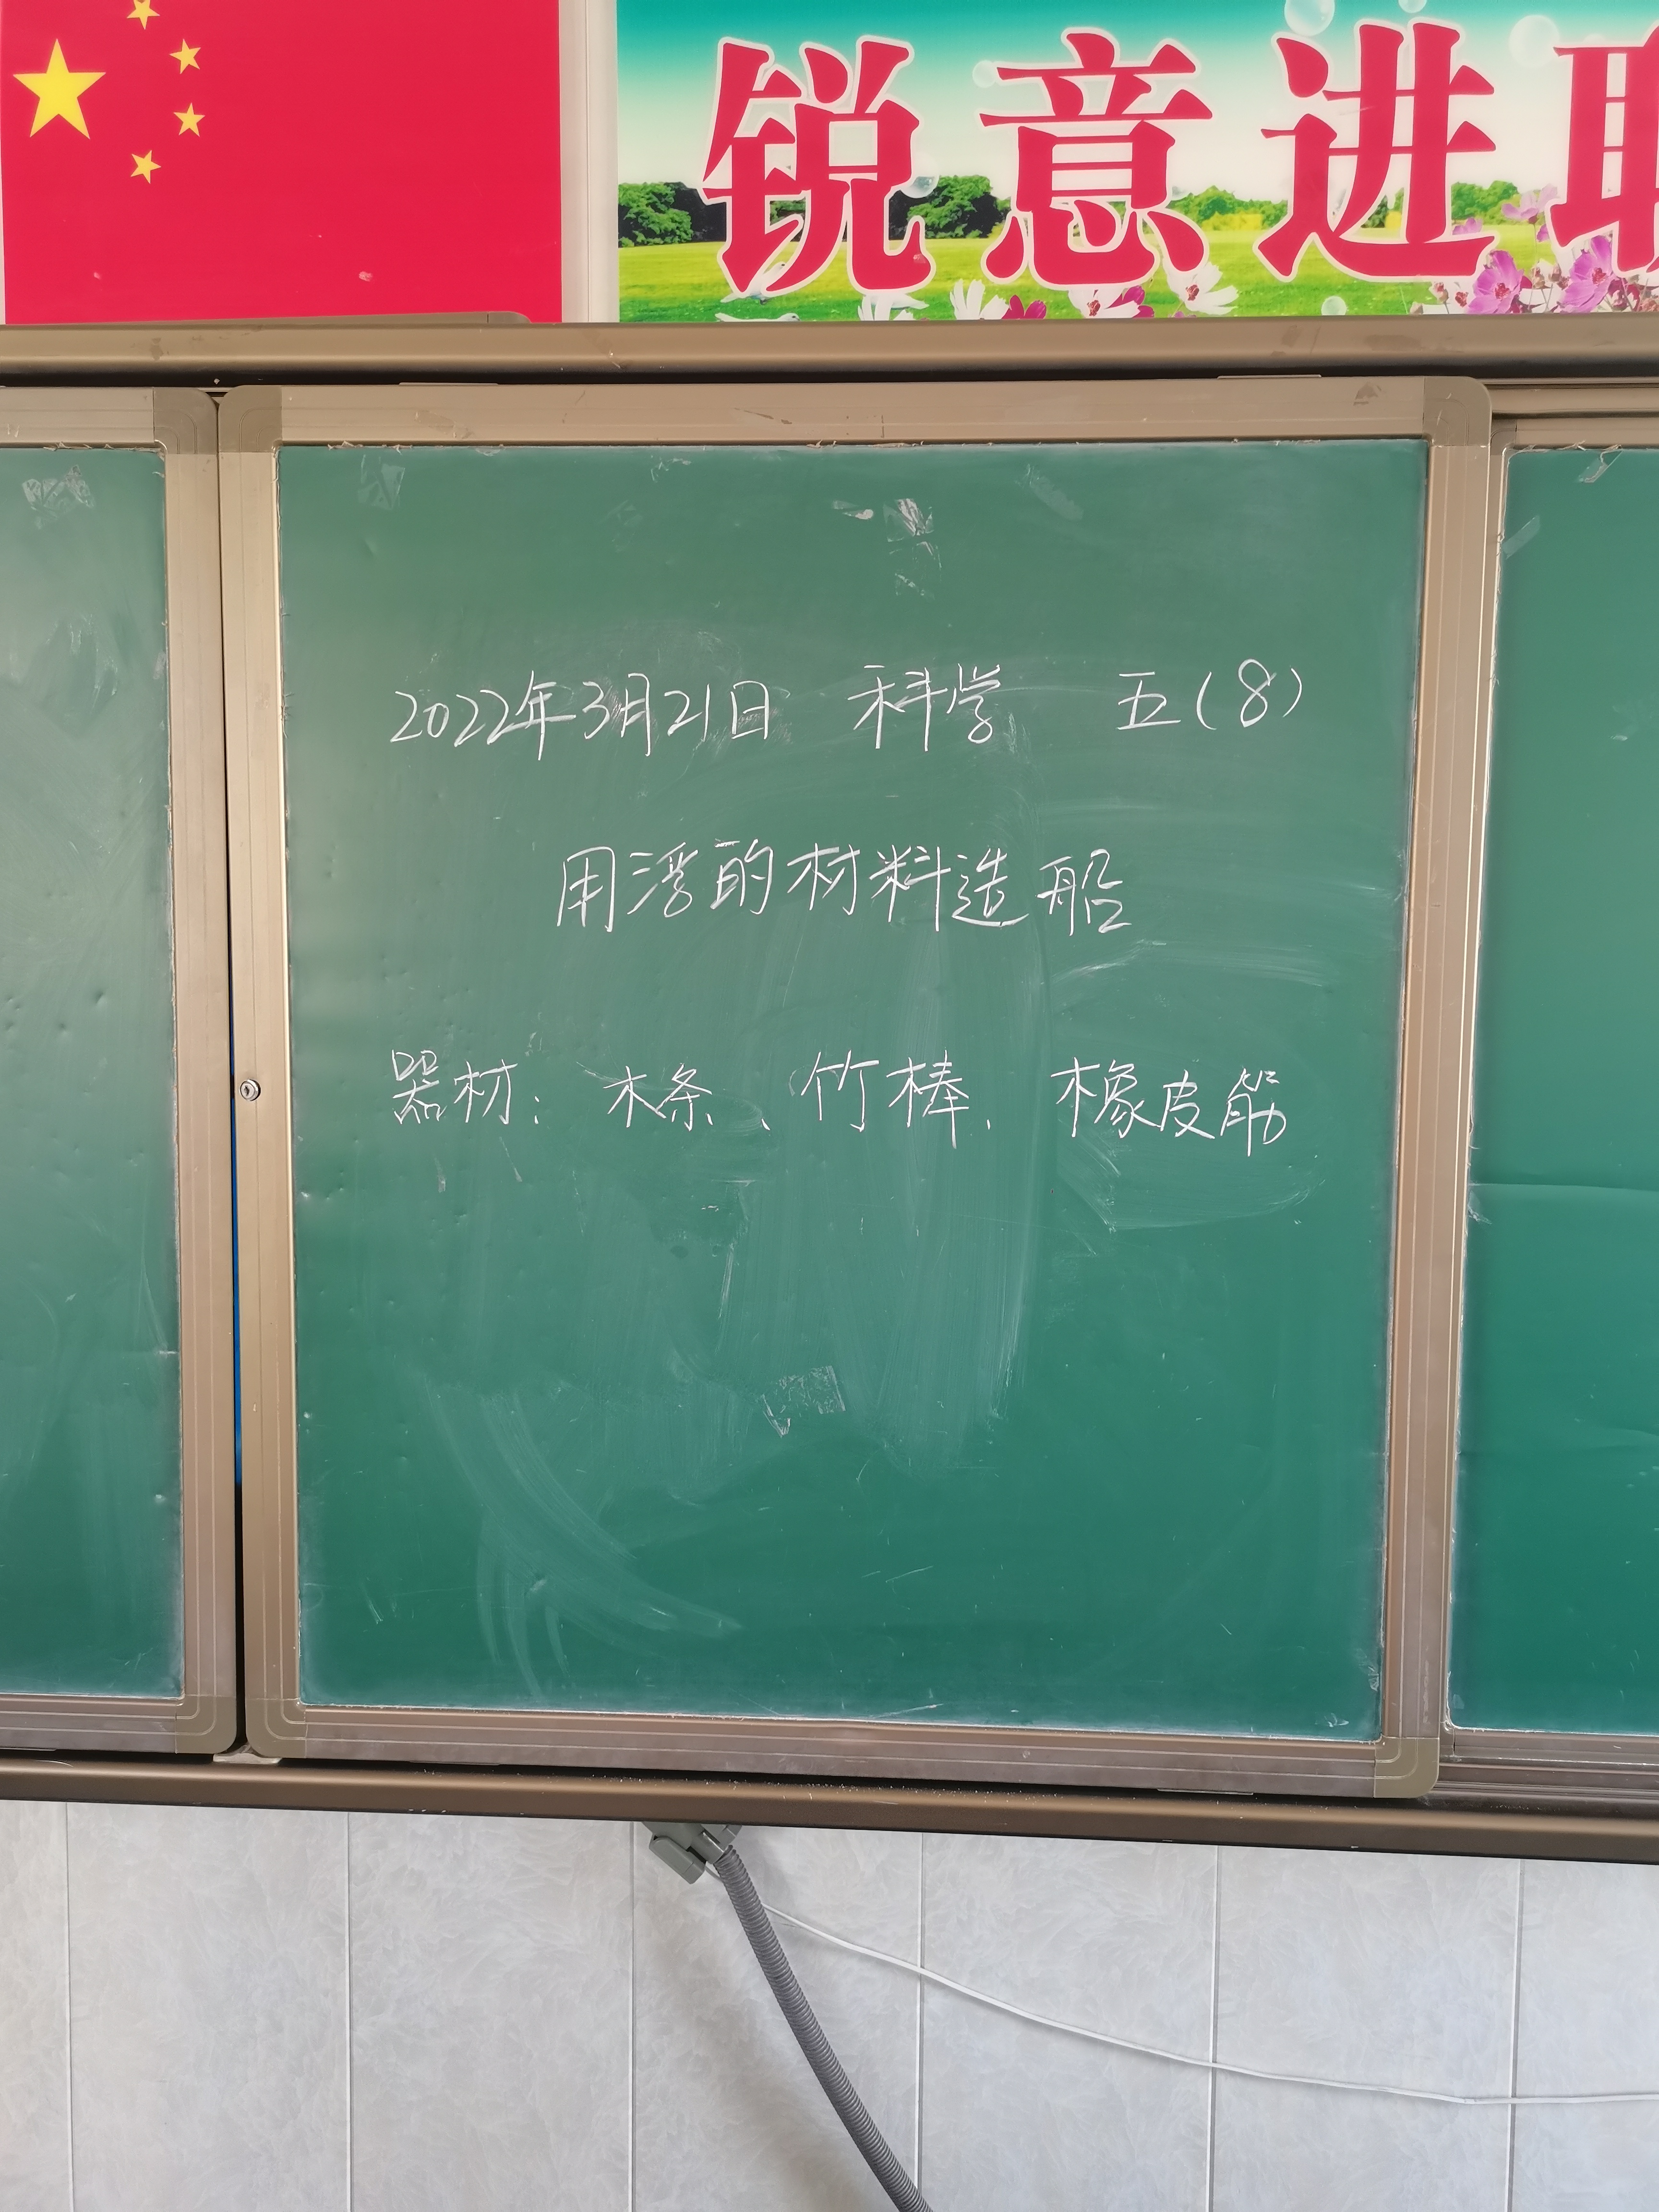 锐意进
2022年3月21日 科学 五(8)
用浮的材料造船
器材: 木条、竹棒、橡皮筋